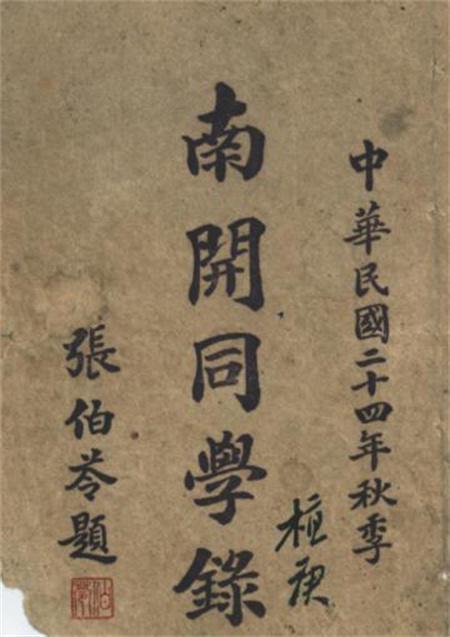 中華民國二十四年秋季
南開同學錄
張伯苓題
伯苓